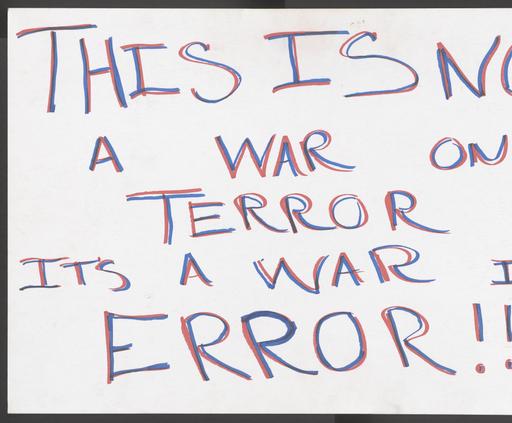 THIS IS NO
A WAR ON
TERROR
ITS A WAR I
ERROR!!